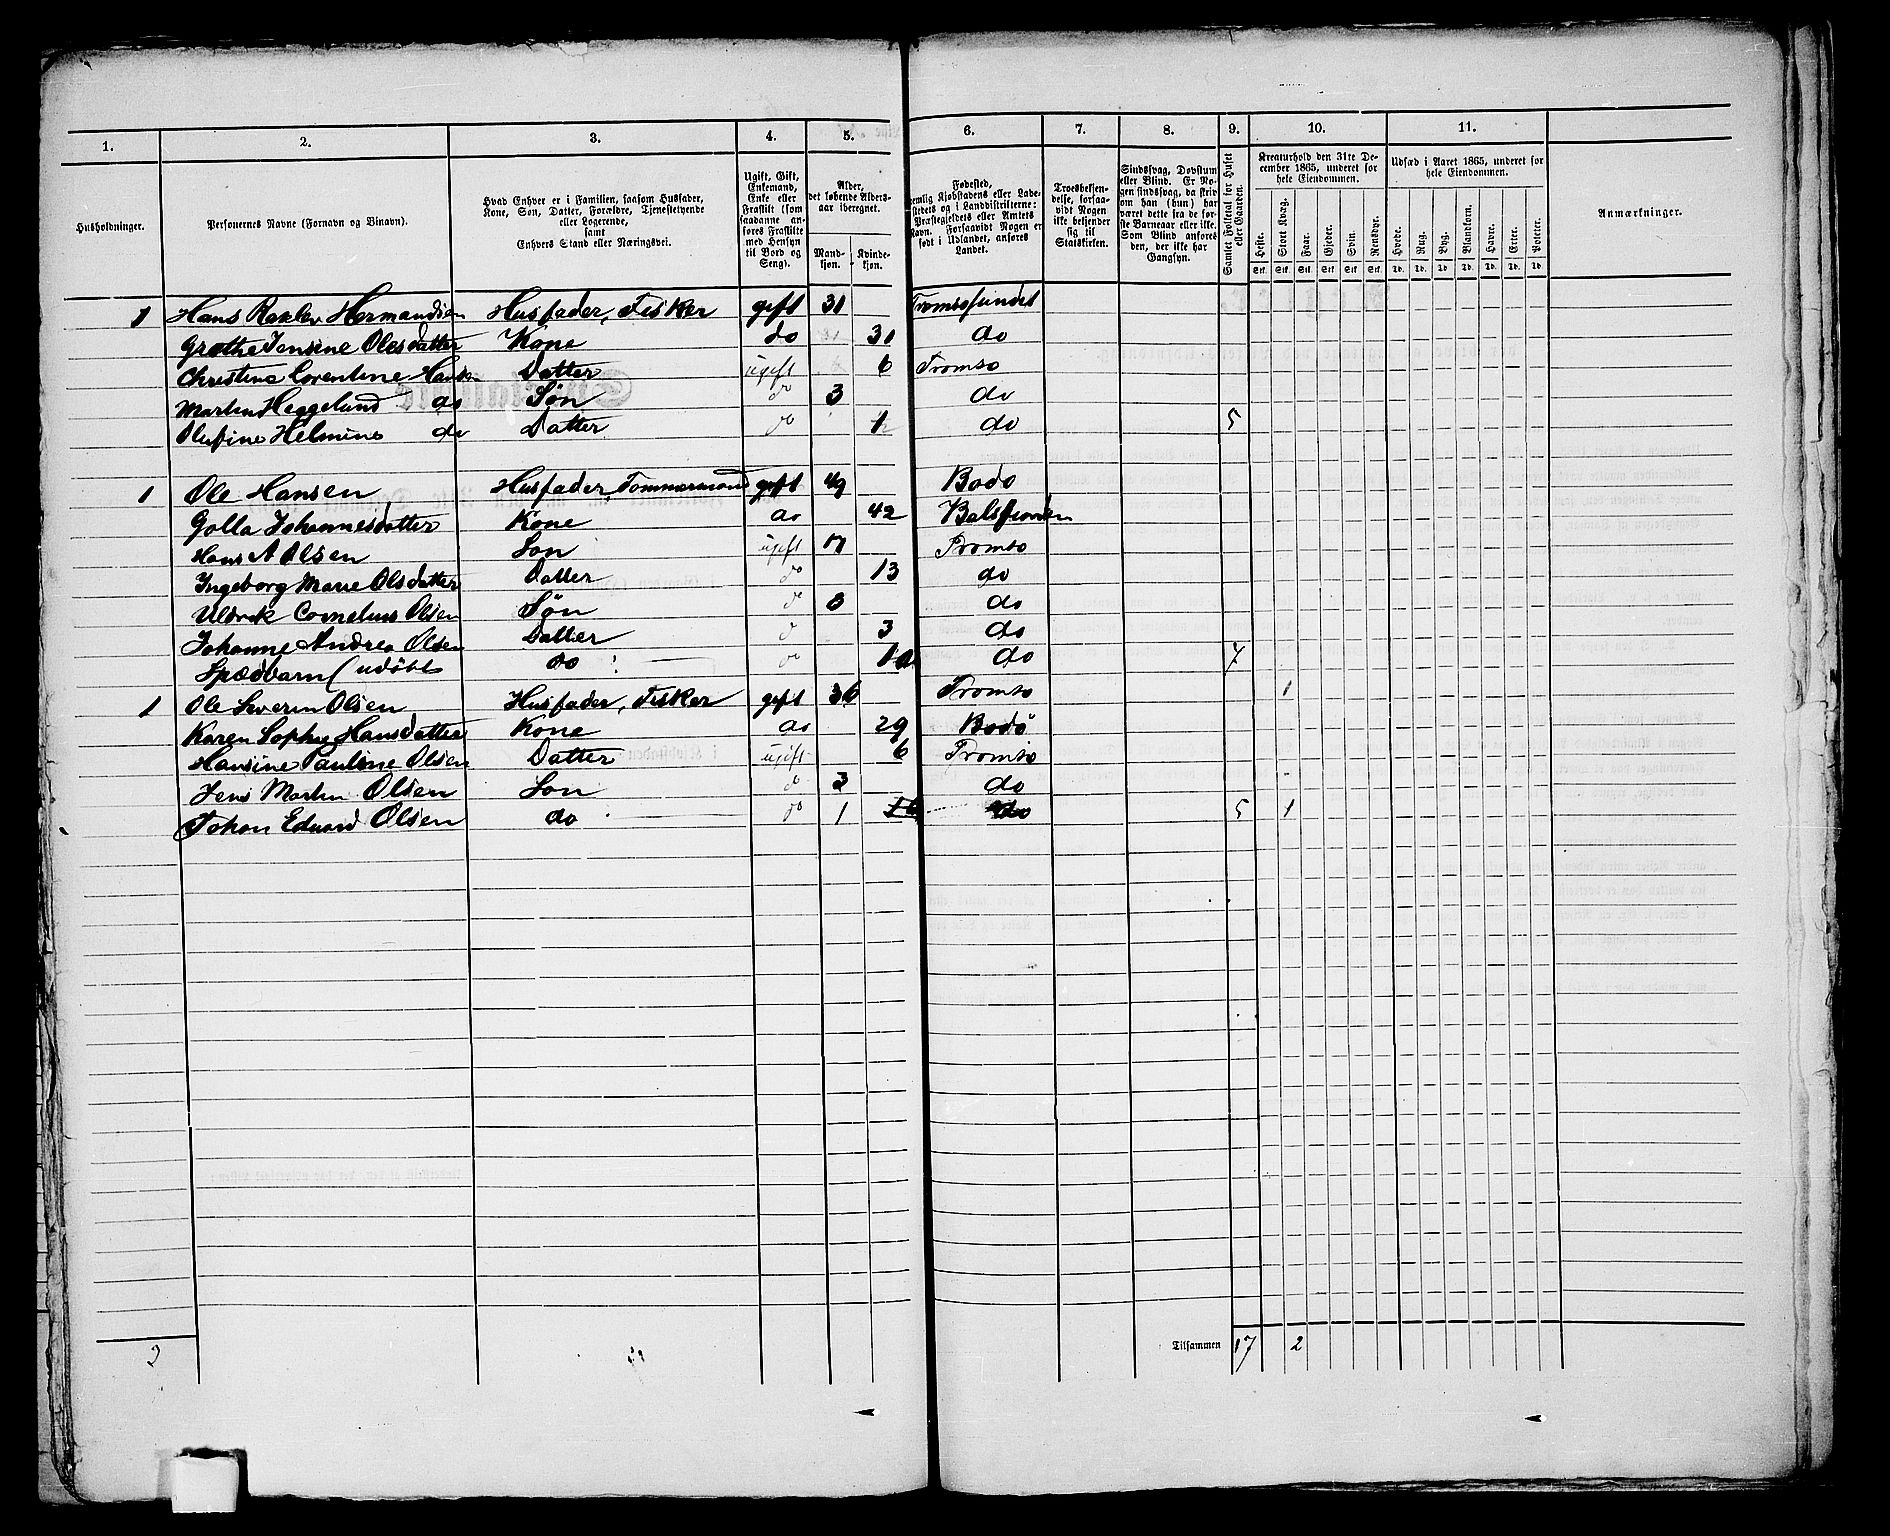 1. 2. 3. 4. 5. 6. 7. 8. 9. 10. 11.
Husholdninger.
Personernes Navne (Fornavn og Binavn).
Hvad Enhver er i Familien, saasom Husfader,
Kone, Søn, Datter, Forældre, Tjenestetyende
eller Logerende,
samt
Enhvers Stand eller Næringsvei.
Ugift, Gift,
Enkemand,
Enke eller
Fraskilt (som
saadanne an-
føres Fraskilte
med Hensyn
til Bord og
Seng).
Alder,
det løbende Alders-
aar iberegnet.
Mand-
kjøn.
Kvinde-
kjøn.
Fødested,
nemlig Kjøbstadens eller Lade-
stedets og i Landdistrikterne:
Præstegjeldets eller Amtets
Navn. Forsaavidt Nogen er
født i Udlandet, anføres
Landet.
Troesbekjen-
delse, forsaa-
vidt Nogen
ikke bekjender
sig til
Statskirken.
Sindssvag, Døvstum
eller Blind. Er No-
gen sindssvag, da skriv
om han (hun) har
været dette fra de før-
ste Barneaar eller ikke.
Som Blind anføres
den, der ikke har
Gangsyn.
Samlet Folketal for Huset
eller Gaarden.
Kreaturhold den 31te De-
cember 1865, underet for
hele Eiendommen.
Heste. Stort Kvæg. Faar. Gjeder. Svin. Rensdyr.
Stk. Stk. Stk. Stk. Stk. Stk.
Udsæd i Aaret 1865, underet for
hele Eiendommen.
Hvede. Rug. Byg. Blandkorn. Havre. Erter. Poteter.
Td. Td. Td. Td. Td. Td. Td.
Anmærkninger.
1 Hans Hermandsen Husfader, Fisker gift 31 Tromsøsundet
Grethe Jensine Olesdatter Kone do 31 do
Christine Lorentine Hansen Datter ugift 6 Tromsø
Martin Heggelund do Søn do 3 do
Olufine Helmine do Datter do 1 do 5
1 Ole Hansen Husfader, Tømmermand gift 49 Bodø
Golla Johannesdatter Kone do 42 Balsfjorden
Hans A Olsen Søn ugift 17 Tromsø
Ingeborg Marie Olsdatter Datter do 13 do
Uldrik Cornelius Olsen Søn do 8 do
Johanne Andrea Olsen Datter do 3 do
Spædbarn (udøbt do do 1 do 7
1 Ole Severin Olsen Husfader, Fisker gift 36 Tromsø 1
Karen Sophie Hansdatter Kone do 29 Bodø
Hansine Pauline Olsen Datter ugift 6 Tromsø
Jens Martin Olsen Søn do 3 do
Johan Eduard Olsen do do 1 do 5 1
Tilsammen 17 2
2